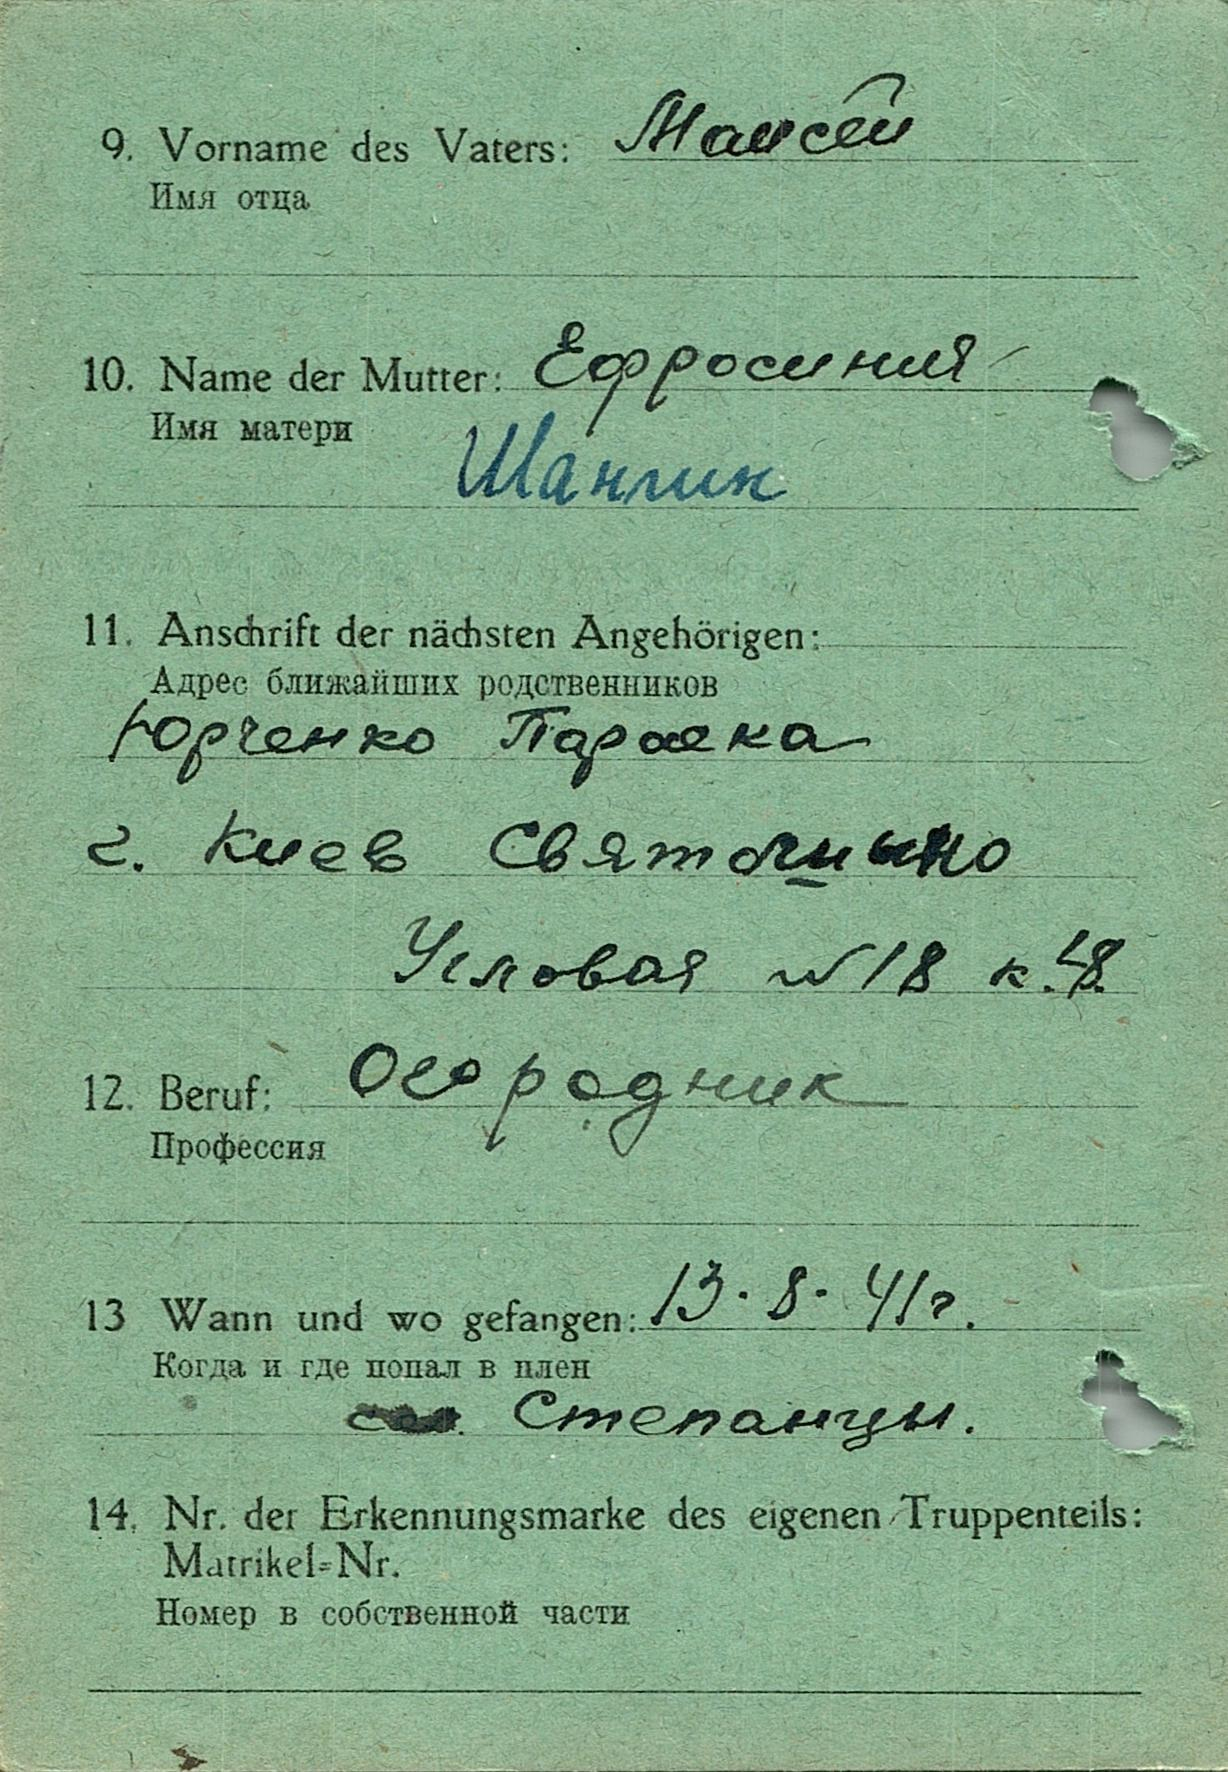 9. Vorname des Vaters: Маисей
Имя отца
10. Name der Mutter: Ефросиния
Имя матери
Шанлин
11. Anschrift der nächsten Angehörigen:
Адрес ближайших родственников
Юрченко Параска
г. Киев
Угловая № 18 к. 48.
12. Beruf: Огородник
Профессия
13 Wann und wo gefangen: 13. 8. 41 г.
Когда и где попал в плен
Степанцы.
14. Nr. der Erkennungsmarke des eigenen Truppenteils:
Matrikel-Nr.
Номер в собственной части